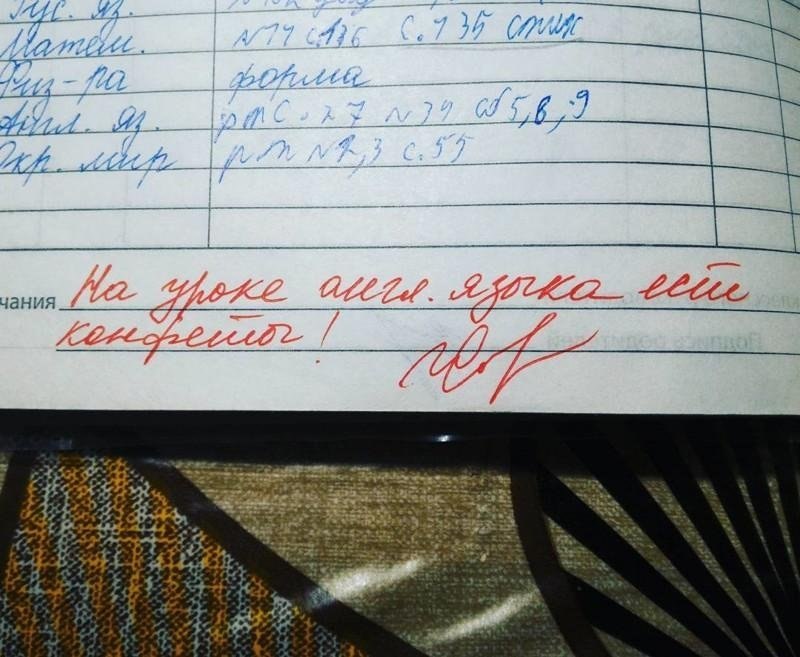 Рус. яз.
Матем. №14 с.136 с.135 стих
Физ-ра форма
Англ. яз. рт с.27 №34 сб 5,8,9
Окр. мир рт №2,3 с.55
чания На уроке англ. языка ест
конфеты!
Подпись родителей